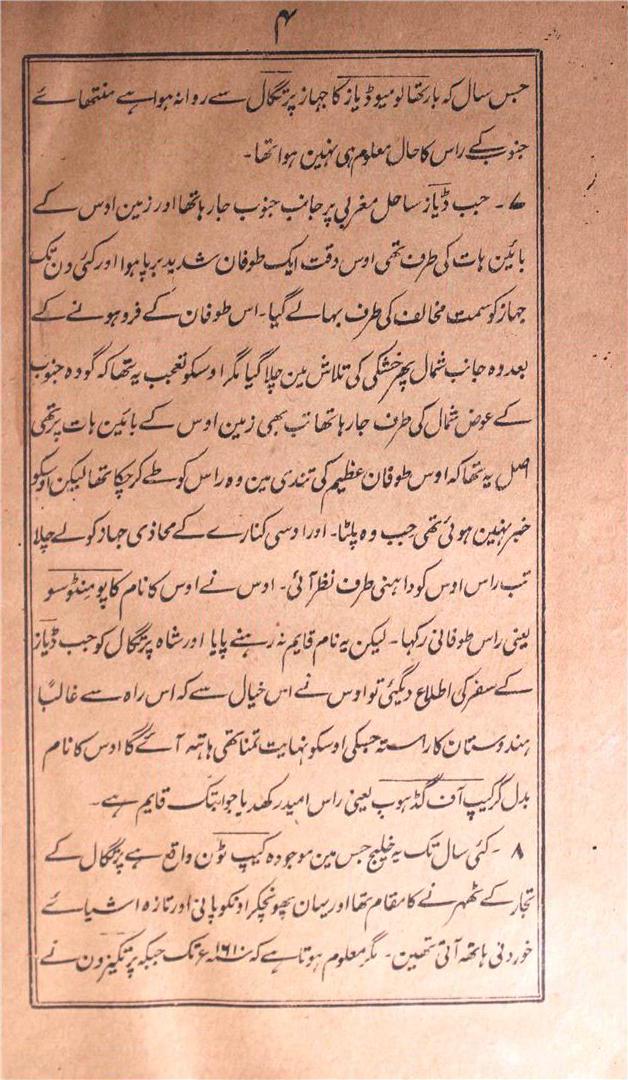 ۴
جس سال کہ بارتھالومیو ڈیاز کا جہاز پرتگال سے روانہ ہوا ہے منتھائے
جنوب کے راس کا حال معلوم ہی نہین ہوا تھا۔
۷۔ جب ڈیاز ساحل مغربی پر جانب جنوب جا رہا تھا اور زمین اوس کے
بائین ہات کی طرف تھی اوس وقت ایک طوفان شدید برپا ہوا اور کئی دن تک
جہاز کو سمت مخالف کی طرف بہا لے گیا۔ اس طوفان کے فرو ہونے کے
بعد وہ جانب شمال پھر خشکی کی تلاش مین چلا گیا مگر اوسکو تعجب یہ تھا کہ گو وہ جنوب
کے عوض شمال کی طرف جا رہا تھا تب بھی زمین اوس کے بائین ہات پر تھی
اصل یہ تھا کہ اوس طوفان عظیم کی تندی مین وہ راس کو طے کر چکا تھا لیکن اوسکو
خبر نہین ہوئی تھی جب وہ پلٹا۔ اور اوسی کنارے کے محاذی جہاز کو لے چلا
تب راس اوس کو داہنی طرف نظر آئی۔ اوس نے اوس کا نام کاپو منٹوسو
یعنی راس طوفانی رکہا۔ لیکن یہ نام قایم نہ رہنے پایا اور شاہ پرتگال کو جب ڈیاز
کے سفر کی اطلاع دیگئی تو اوس نے اس خیال سے کہ اس راہ سے غالباً
ہندوستان کا راستہ جسکی اوسکو نہایت تمنا تھی ہاتہہ آئے گا اوس کا نام
بدل کر کیپ آف گڈ ہوپ یعنی راس امید رکھدیا جو ابتک قایم ہے۔
۸۔ کئی سال تک یہ خلیج جس مین موجودہ کیپ ٹون واقع ہے پرتگال کے
تجار کے ٹھہرنے کا مقام تھا اور یہان پھونچکر اونکو پانی اور تازہ اشیائے
خوردنی ہاتھہ آتی تھین۔ مگر معلوم ہوتا ہے کہ ۱۶۱۰ء تک جبکہ پرتگیزون نے